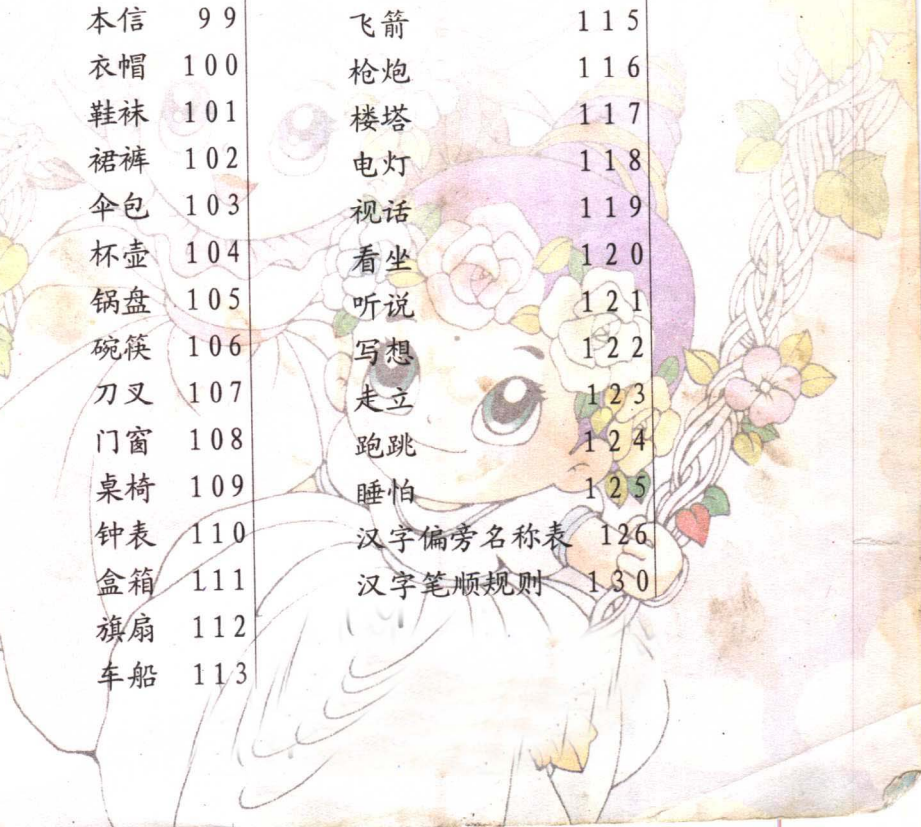 本信 99
衣帽 100
鞋袜 101
裙裤 102
伞包 103
杯壶 104
锅盘 105
碗筷 106
刀叉 107
门窗 108
桌椅 109
钟表 110
盒箱 111
旗扇 112
车船 113
飞箭 115
枪炮 116
楼塔 117
电灯 118
视话 119
看坐 120
听说 121
写想 122
走立 123
跑跳 124
睡怕 125
汉字偏旁名称表 126
汉字笔顺规则 130